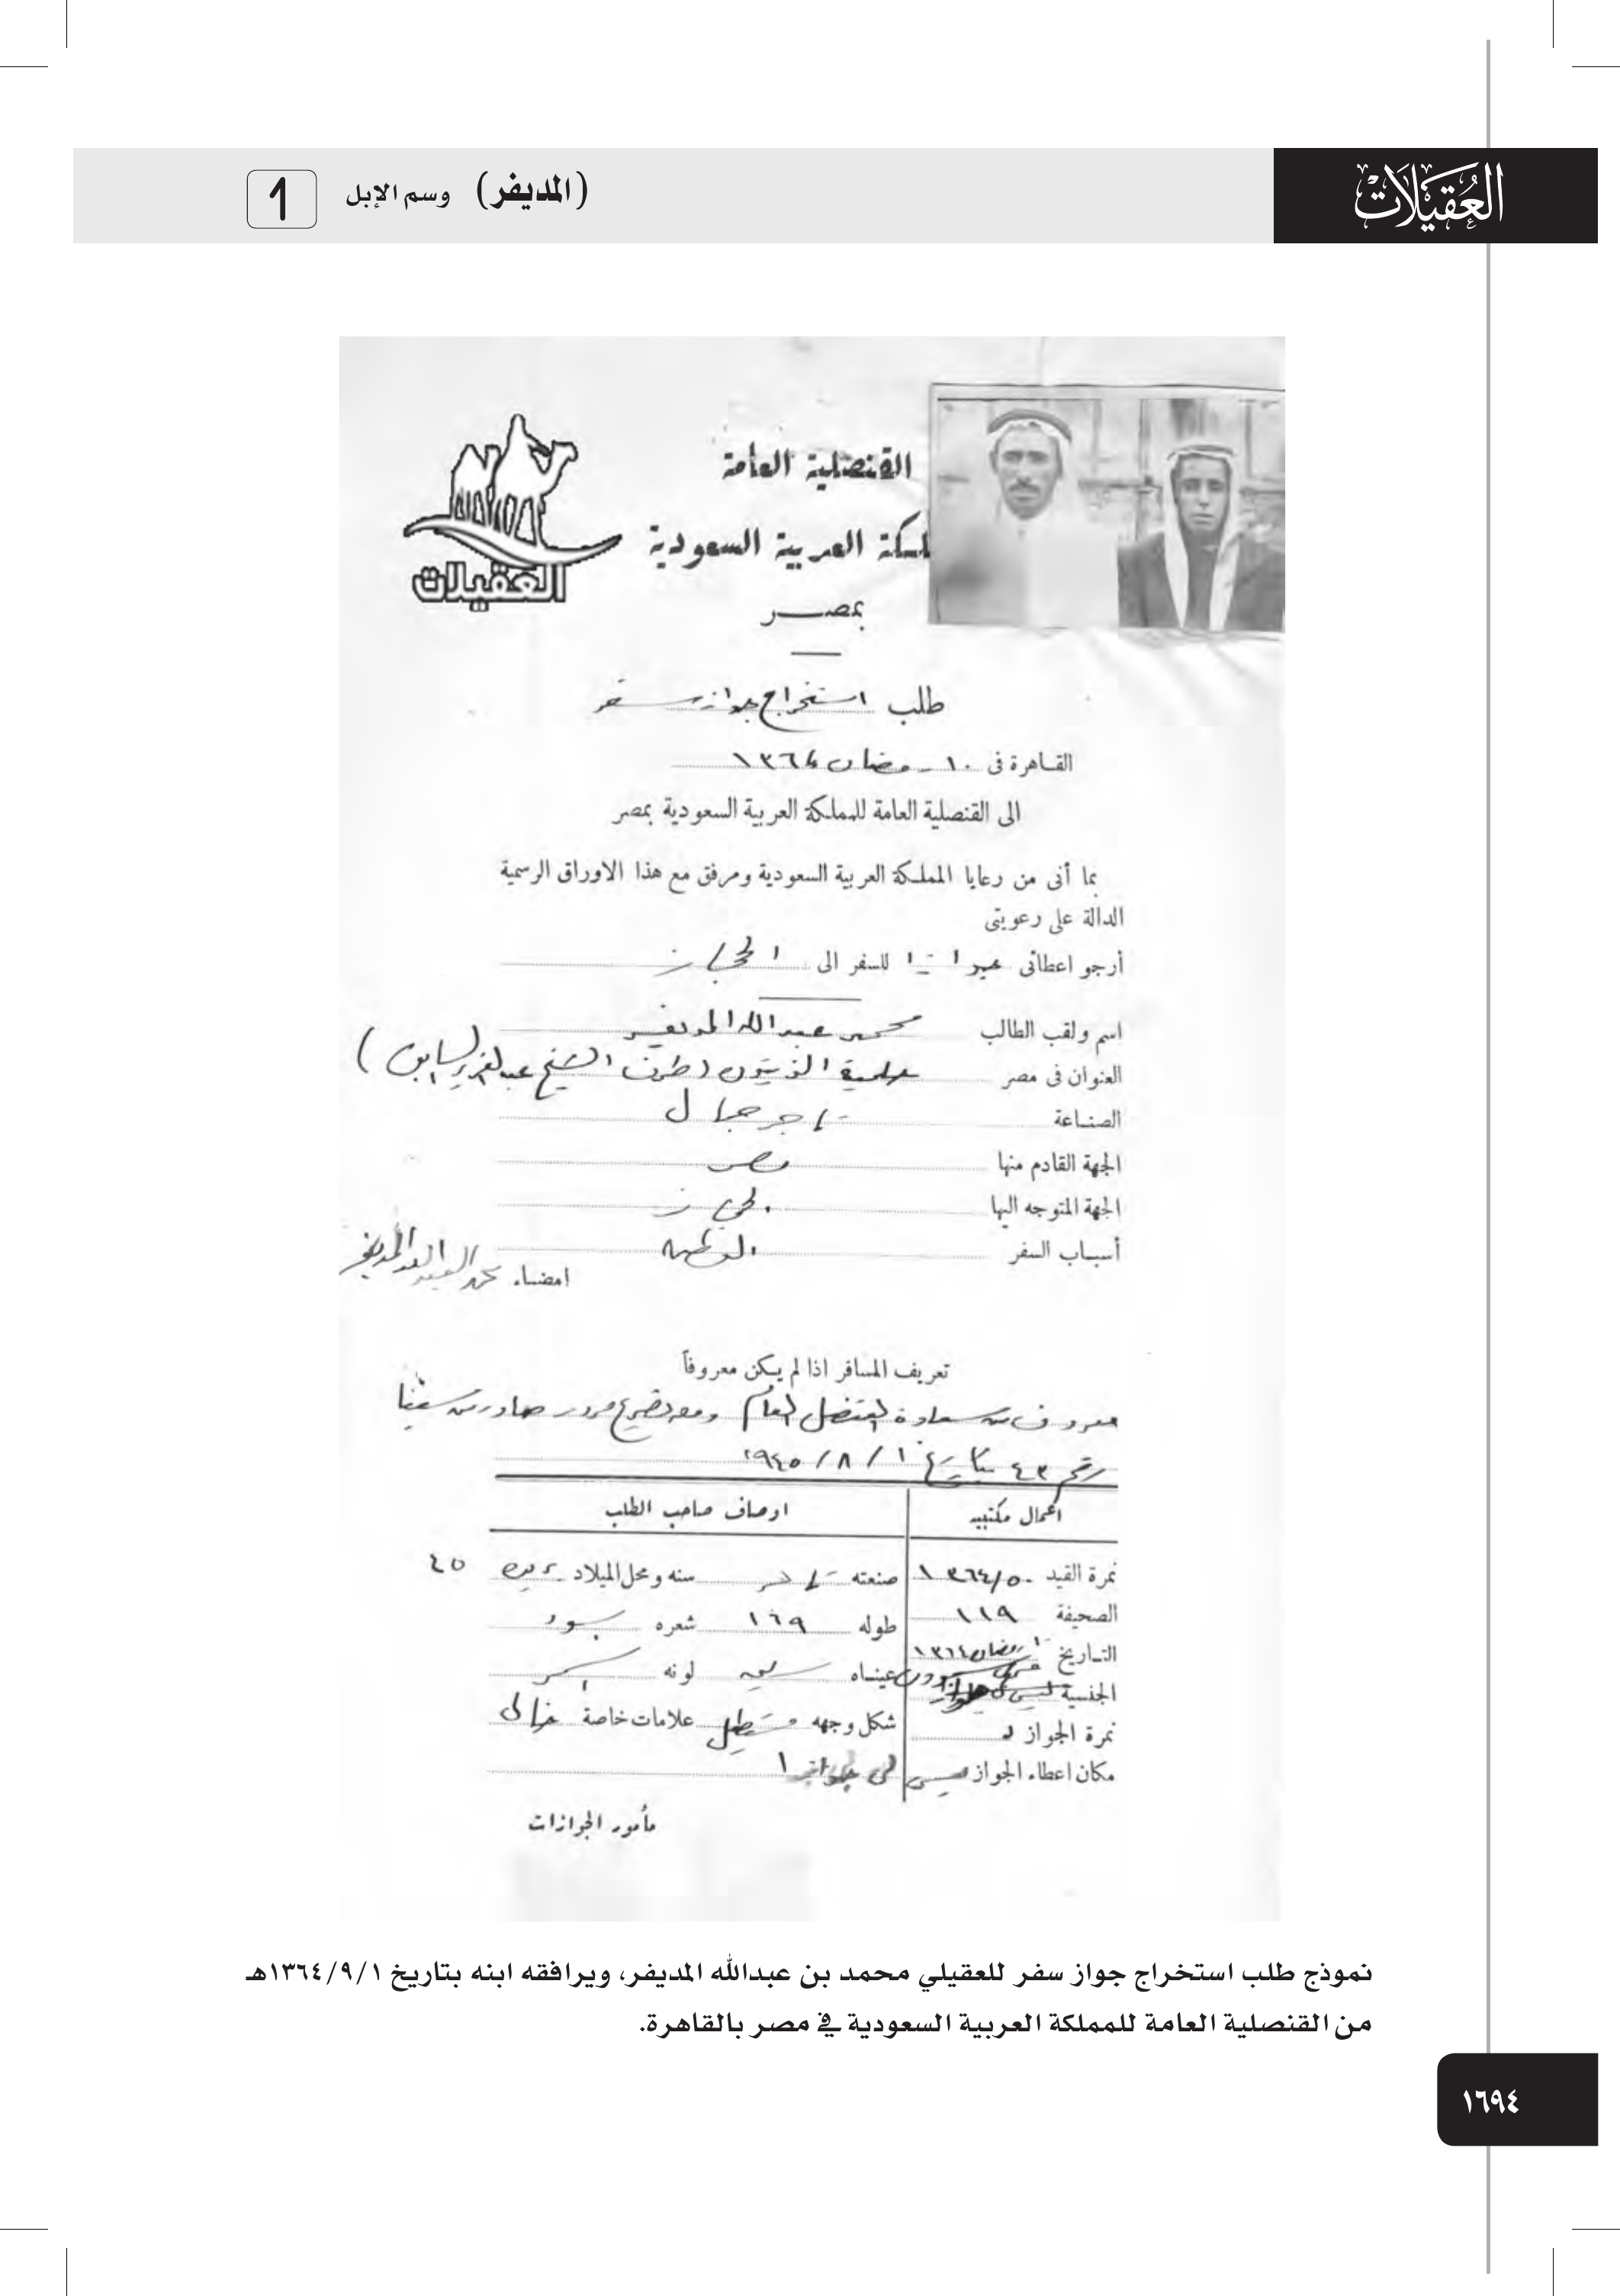 العقيلات
(المديفر) وسم الإبل
القنصلية العامة
لمملكة العربية السعودية
بمصر
العقيلات
طلب استخراج جواز سفر
القاهرة فى ١٠ رمضان ١٣٦٤
الى القنصلية العامة للمملكة العربية السعودية بمصر
بما أنى من رعايا المملكة العربية السعودية ومرفق مع هذا الاوراق الرسمية
الدالة على رعويتى
أرجو اعطائى للسفر الى الحجاز
اسم ولقب الطالب محمد عبدالله المديفر
العنوان فى مصر حلمية الزيتون (طرف الشيخ عبدالعزيز السابق)
الصناعة تاجر جمال
الجهة القادم منها مصر
الجهة المتوجه اليها
أسباب السفر
امضاء محمد العبدالله المديفر
تعريف المسافر اذا لم يكن معروفاً
معروف من سعادة القنصل العام ومعه تصريح مرور صادر من
رقم ٤٣ بتاريخ ١ / ٨ / ١٩٤٥
أعمال مكتبيه
اوصاف صاحب الطلب
نمرة القيد ١٣٦٤/٥٠ صنعته تاجر سنه ومحل الميلاد بريده ٤٥
الصحيفة ١١٩ طوله ١٦٩ شعره اسود
التاريخ رمضان ١٣٦٤
الجنسية عيناه لونه اسمر
نمرة الجواز شكل وجهه مستطيل علامات خاصة خالى
مكان اعطاء الجواز
مأمور الجوازات
نموذج طلب استخراج جواز سفر للعقيلي محمد بن عبدالله المديفر، ويرافقه ابنه بتاريخ ١٣٦٤/٩/١هـ
من القنصلية العامة للمملكة العربية السعودية في مصر بالقاهرة.
١٦٩٤